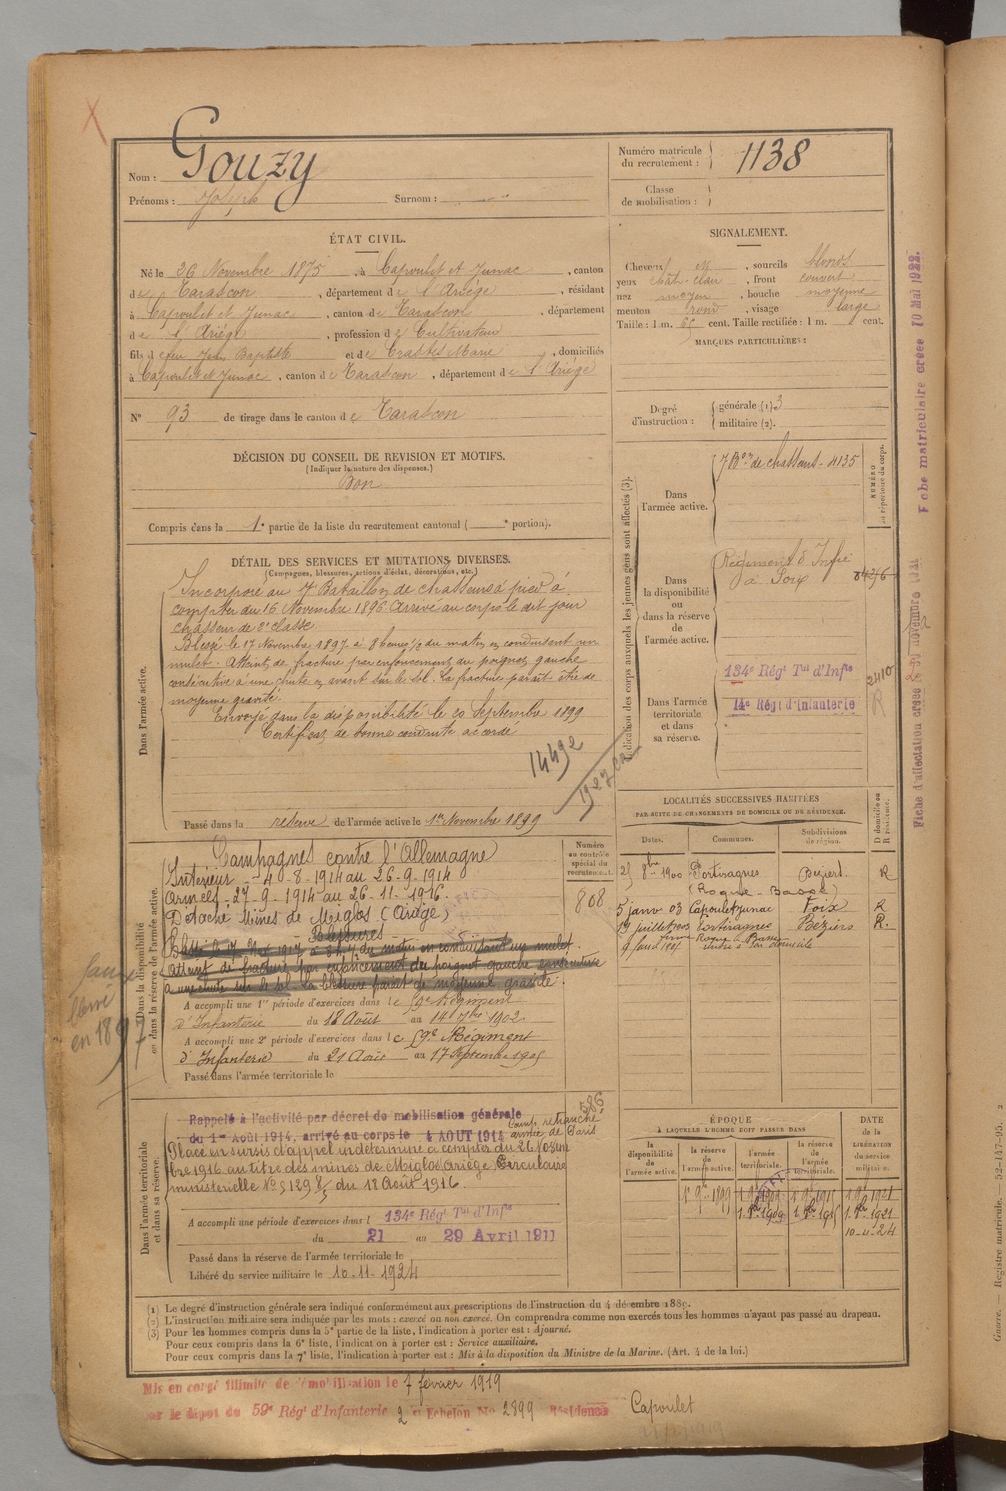 Nom : Gouzy
Prénoms : Joseph Surnom :
Numéro matricule
du recrutement : 1138
Classe
de mobilisation :
ÉTAT CIVIL.
Né le 26 Novembre 1875, à Capoulet et Junac, canton
de Tarascon, département de l'Ariège, résidant
à Capoulet et Junac, canton de Tarascon, département
de l'Ariège, profession de Cultivateur
fils de feu Jean Baptiste et de Trastes Marie, domiciliés
à Capoulet et Junac, canton de Tarascon, département de l'Ariège
N° 93 de tirage dans le canton de Tarascon
SIGNALEMENT.
Cheveux et, sourcils blonds
yeux chât-clair, front couvert
nez moyen, bouche moyenne
menton rond, visage large
Taille : 1 m. 65 cent. Taille rectifiée : 1 m. cent.
MARQUES PARTICULIÈRES :
Degré
d'instruction :
générale (1) 3
militaire (2).
DÉCISION DU CONSEIL DE REVISION ET MOTIFS.
(Indiquer la nature des dispenses.)
Bon
Compris dans la 1e partie de la liste du recrutement cantonal ( e portion).
DÉTAIL DES SERVICES ET MUTATIONS DIVERSES.
(Campagnes, blessures, actions d'éclat, décorations, etc.)
Dans l'armée active.
Incorporé au 7e Bataillon de chasseurs à pied à
compter du 16 Novembre 1896. Arrivé au corps le dit jour
chasseur de 2e classe.
Blessé le 17 Novembre 1897 à 8 heures ½ du matin en conduisant un
mulet. Atteint de fracture par enfoncement du poignet gauche
consécutive à une chute en avant sur le sol. La fracture paraît être de
moyenne gravité.
Envoyé dans la disponibilité le 20 Septembre 1899
Certificat de bonne conduite accordé
14492
Passé dans la réserve de l'armée active le 1er Novembre 1899
Indication des corps auxquels les jeunes gens sont affectés (3).
Dans
l'armée active.
7 Bon de chasseurs - 4135
NUMÉRO
au répertoire du corps.
Dans
la disponibilité
ou
dans la réserve
de
l'armée active.
Régiment d'Infie
à Foix
Dans l'armée
territoriale
et dans
sa réserve.
134e Régt Tal d'Infie
14e Régt d'Infanterie
2410
R
LOCALITÉS SUCCESSIVES HABITÉES
PAR SUITE DE CHANGEMENTS DE DOMICILE OU DE RÉSIDENCE.
Dates. Communes. Subdivisions
de région. D domicile ou
R résidence.
25 8bre 1900 Portiragnes Béziers R
(Roque-Basse)
5 janv 03 Capoulet Junac Foix R
Portiragnes Béziers R.
Dans la disponibilité
ou dans la réserve de l'armée active.
Numéro
au contrôle
spécial du
recrutement.
868
Campagnes contre l'Allemagne
Intérieur - 4-8-1914 au 26-9-1914
Armées - 27-9-1914 au 26-11-1916.
Détaché Mines de Miglos (Ariège)
Blessures
Blessé le 17 1917 à 8h ½ du matin en conduisant un mulet.
atteint de fracture par enfoncement du poignet gauche consécutive
à une chute sur le sol. La blessure paraît de moyenne gravité.
faux
en 1897
A accompli une 1re période d'exercices dans le 59e Régiment
d'Infanterie du 18 Août au 14 7bre 1902.
A accompli une 2e période d'exercices dans le 59e Régiment
d'Infanterie du 21 Août au 17 Septembre 1905
Passé dans l'armée territoriale le
Dans l'armée territoriale
et dans sa réserve.
586
Rappelé à l'activité par décret de mobilisation générale
du 1er Août 1914, arrivé au corps le 4 AOUT 1914
Camp retranché
armée de Paris
Placé en sursis d'appel indéterminé à compter du 26 Novem
bre 1916 au titre des mines de Miglos (Ariège) Circulaire
ministérielle No 5139 8/5 du 18 Août 1916.
A accompli une période d'exercices dans l 134e Régt Tal d'Infie
du 21 au 29 Avril 1911
Passé dans la réserve de l'armée territoriale le
Libéré du service militaire le 10-11-1924
ÉPOQUE
À LAQUELLE L'HOMME DOIT PASSER DANS
la
disponibilité
de
l'armée active.
la réserve
de
l'armée active.
l'armée
territoriale.
la réserve
de
l'armée
territoriale.
DATE
de la
LIBÉRATION
du service
militaire.
1 9bre 1899 1 9bre 1909 1 9bre 1915 1 9bre 1921
1 8bre 1909 1 8bre 1915 1 8bre 1921
10-11-24
(1) Le degré d'instruction générale sera indiqué conformément aux prescriptions de l'instruction du 4 décembre 1889.
(2) L'instruction militaire sera indiquée par les mots : exercé ou non exercé. On comprendra comme non exercés tous les hommes n'ayant pas passé au drapeau.
(3) Pour les hommes compris dans la 5e partie de la liste, l'indication à porter est : Ajourné.
Pour ceux compris dans la 6e liste, l'indication à porter est : Service auxiliaire.
Pour ceux compris dans la 7e liste, l'indication à porter est : Mis à la disposition du Ministre de la Marine. (Art. 4 de la loi.)
Mis en congé illimité de démobilisation le 7 février 1919
par le dépôt du 59e Régt d'Infanterie 2 e Echelon No 2899 Résidence Capoulet
Fiche matriculaire créée 10 Mai 1922.
Guerre. — Registre matricule. — 52-147-95. 2